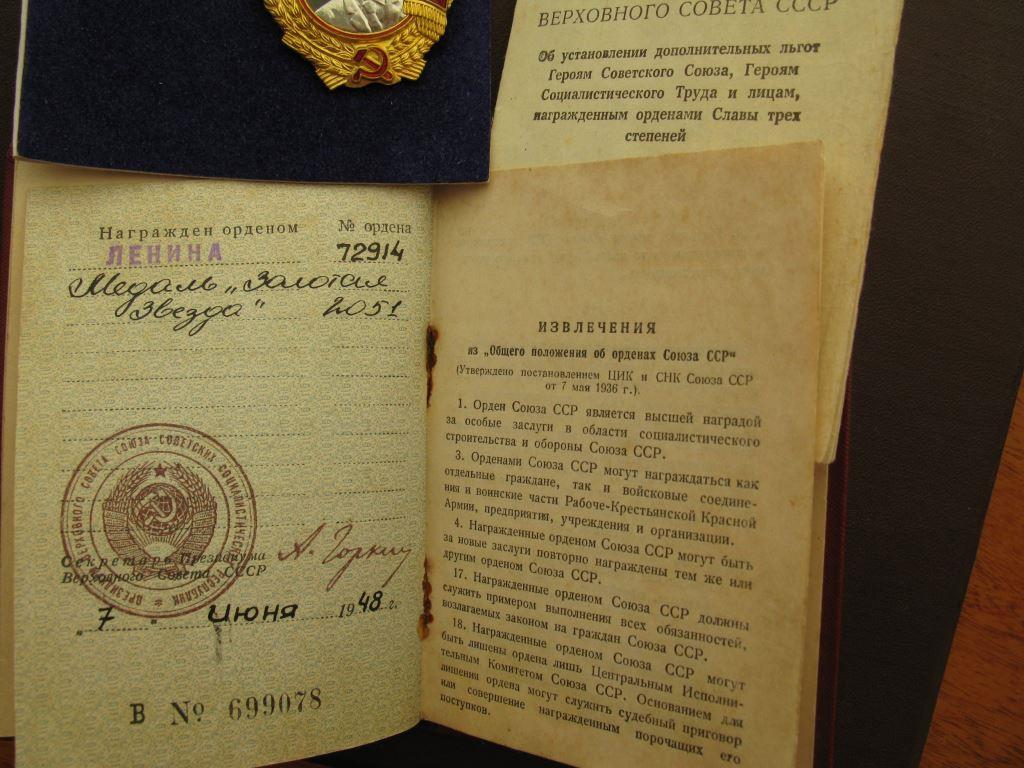 ВЕРХОВНОГО СОВЕТА СССР
Об установлении дополнительных льгот
Героям Советского Союза, Героям
Социалистического Труда и лицам,
награжденным орденами Славы трех
степеней
Награжден орденом № ордена
ЛЕНИНА 72914
Медаль „Золотая
Звезда" 2051
Секретарь Президиума
Верховного Совета СССР
А. Горкин
„7" июня 1948 г.
В № 699078
ИЗВЛЕЧЕНИЯ
из „Общего положения об орденах Союза ССР"
(Утверждено постановлением ЦИК и СНК Союза ССР
от 7 мая 1936 г.).
1. Орден Союза ССР является высшей наградой
за особые заслуги в области социалистического
строительства и обороны Союза ССР.
3. Орденами Союза ССР могут награждаться как
отдельные граждане, так и войсковые соедине-
ния и воинские части Рабоче-Крестьянской Красной
Армии, предприятия, учреждения и организации.
4. Награжденные орденом Союза ССР могут быть
за новые заслуги повторно награждены тем же или
другим орденом Союза ССР.
17. Награжденные орденом Союза ССР должны
служить примером выполнения всех обязанностей,
возлагаемых законом на граждан Союза ССР.
18. Награжденные орденом Союза ССР могут
быть лишены ордена лишь Центральным Исполни-
тельным Комитетом Союза ССР. Основанием для
лишения ордена могут служить судебный приговор
или совершение награжденным порочащих его
поступков.